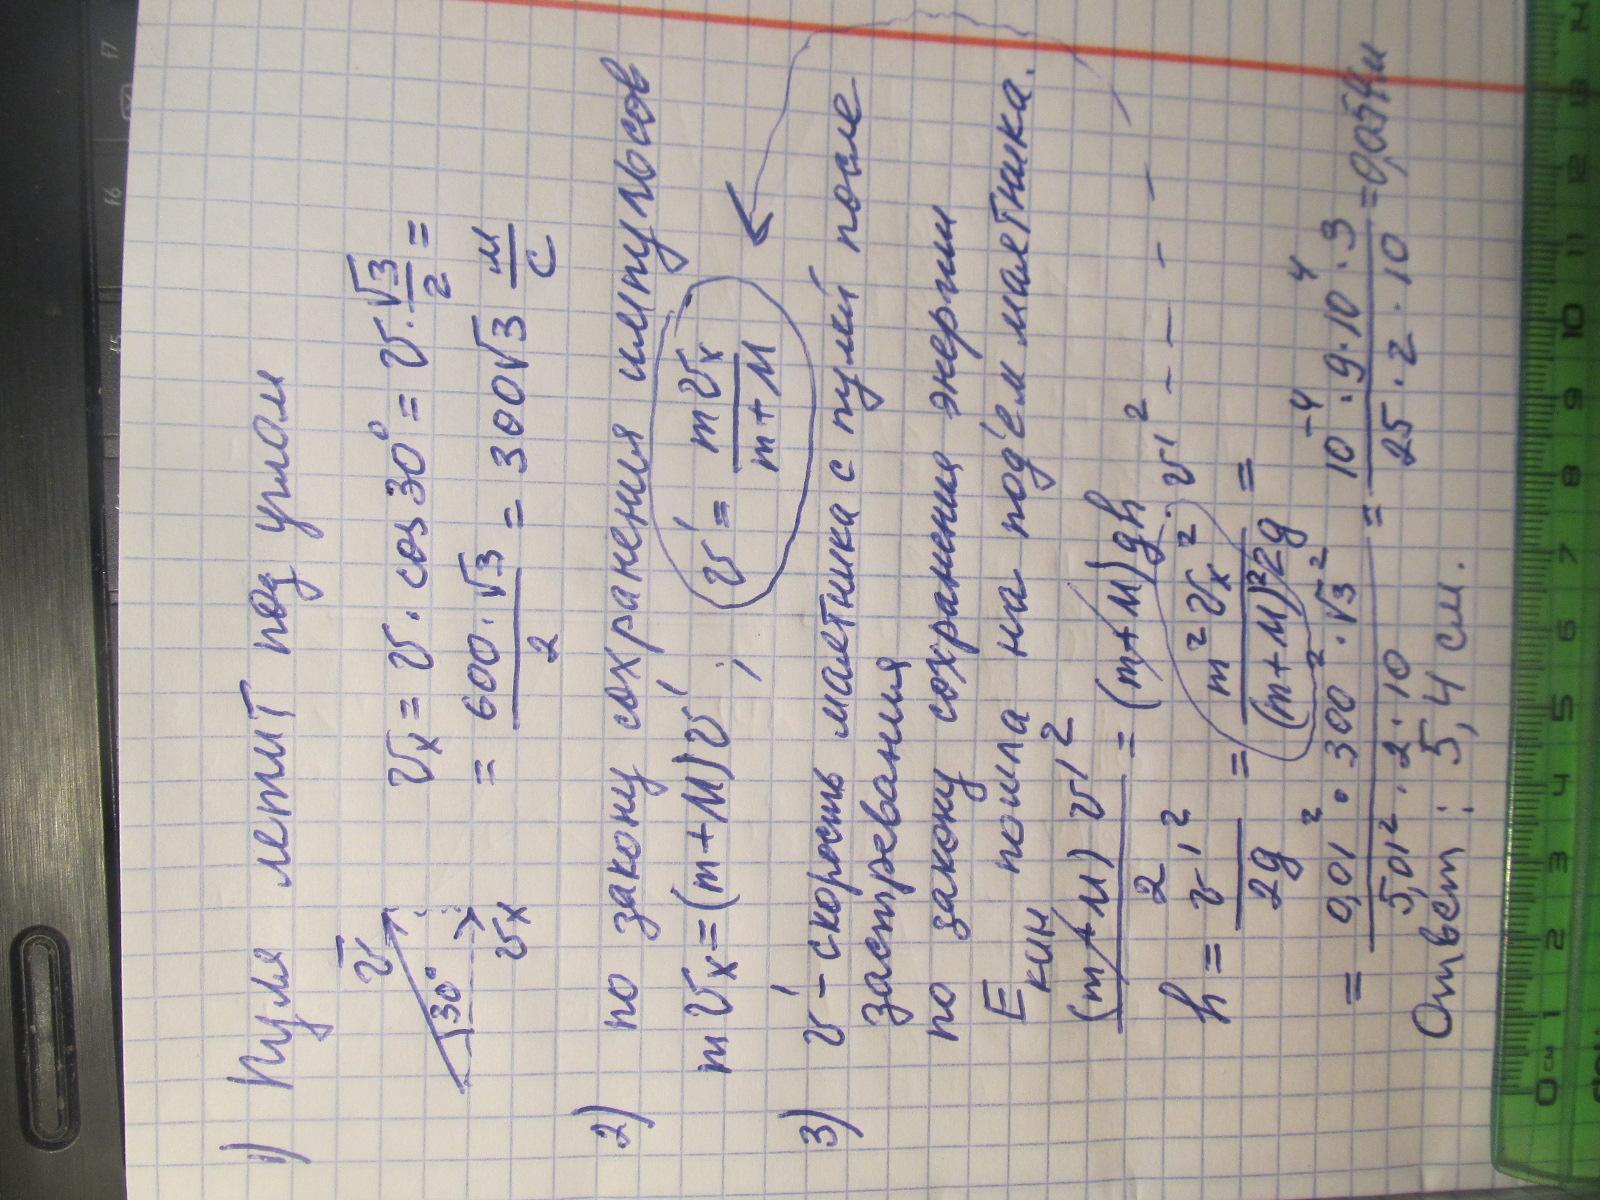 1) Пуля летит под углом
v̄
30°
vx
vx = v · cos 30° = v · √3/2 =
= 600 · √3/2 = 300√3 м/с
2) по закону сохранения импульсов
m vx = (m + M) v' ; v' = m vx/(m + M)
3) v' - скорость маятника с пулей после
застревания
по закону сохранения энергии
Eкин пошла на под'ем маятника.
(m + M) v'²/2 = (m + M) g h
h = v'²/2g = m² vx²/(m + M)² 2g = · v'² - - - - -
= 0,01² · 300² · √3²/5,01² · 2 · 10 = 10⁻⁴ · 9 · 10⁴ · 3/25 · 2 · 10 = 0,054 м
Ответ: 5,4 см.
0 1 2 3 4 5 6 7 8 9 10 11 12 13
f6
f7